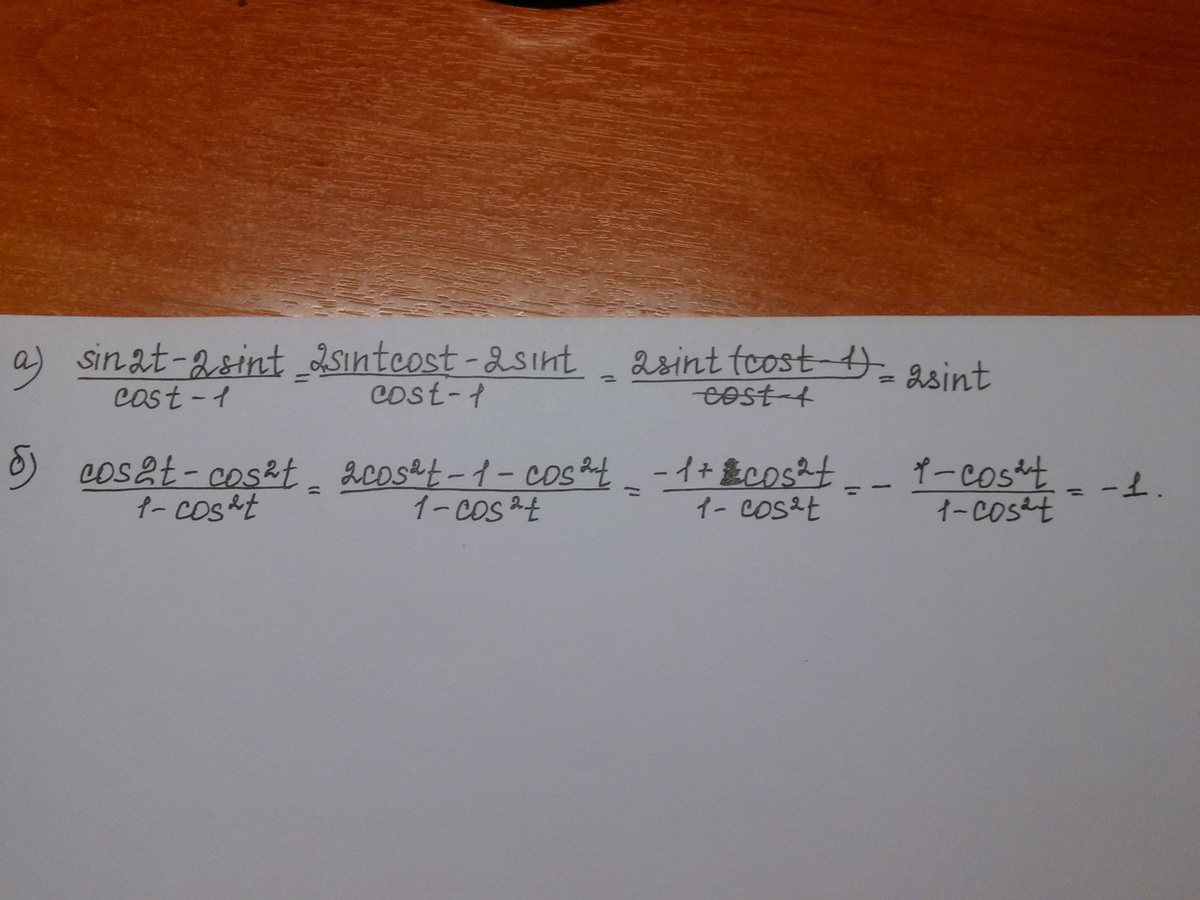 а) (sin2t - 2sint)/(cost - 1) = (2sintcost - 2sint)/(cost - 1) = (2sint(cost - 1))/(cost - 1) = 2sint
б) (cos2t - cos²t)/(1 - cos²t) = (2cos²t - 1 - cos²t)/(1 - cos²t) = (-1 + cos²t)/(1 - cos²t) = - (1 - cos²t)/(1 - cos²t) = -1.